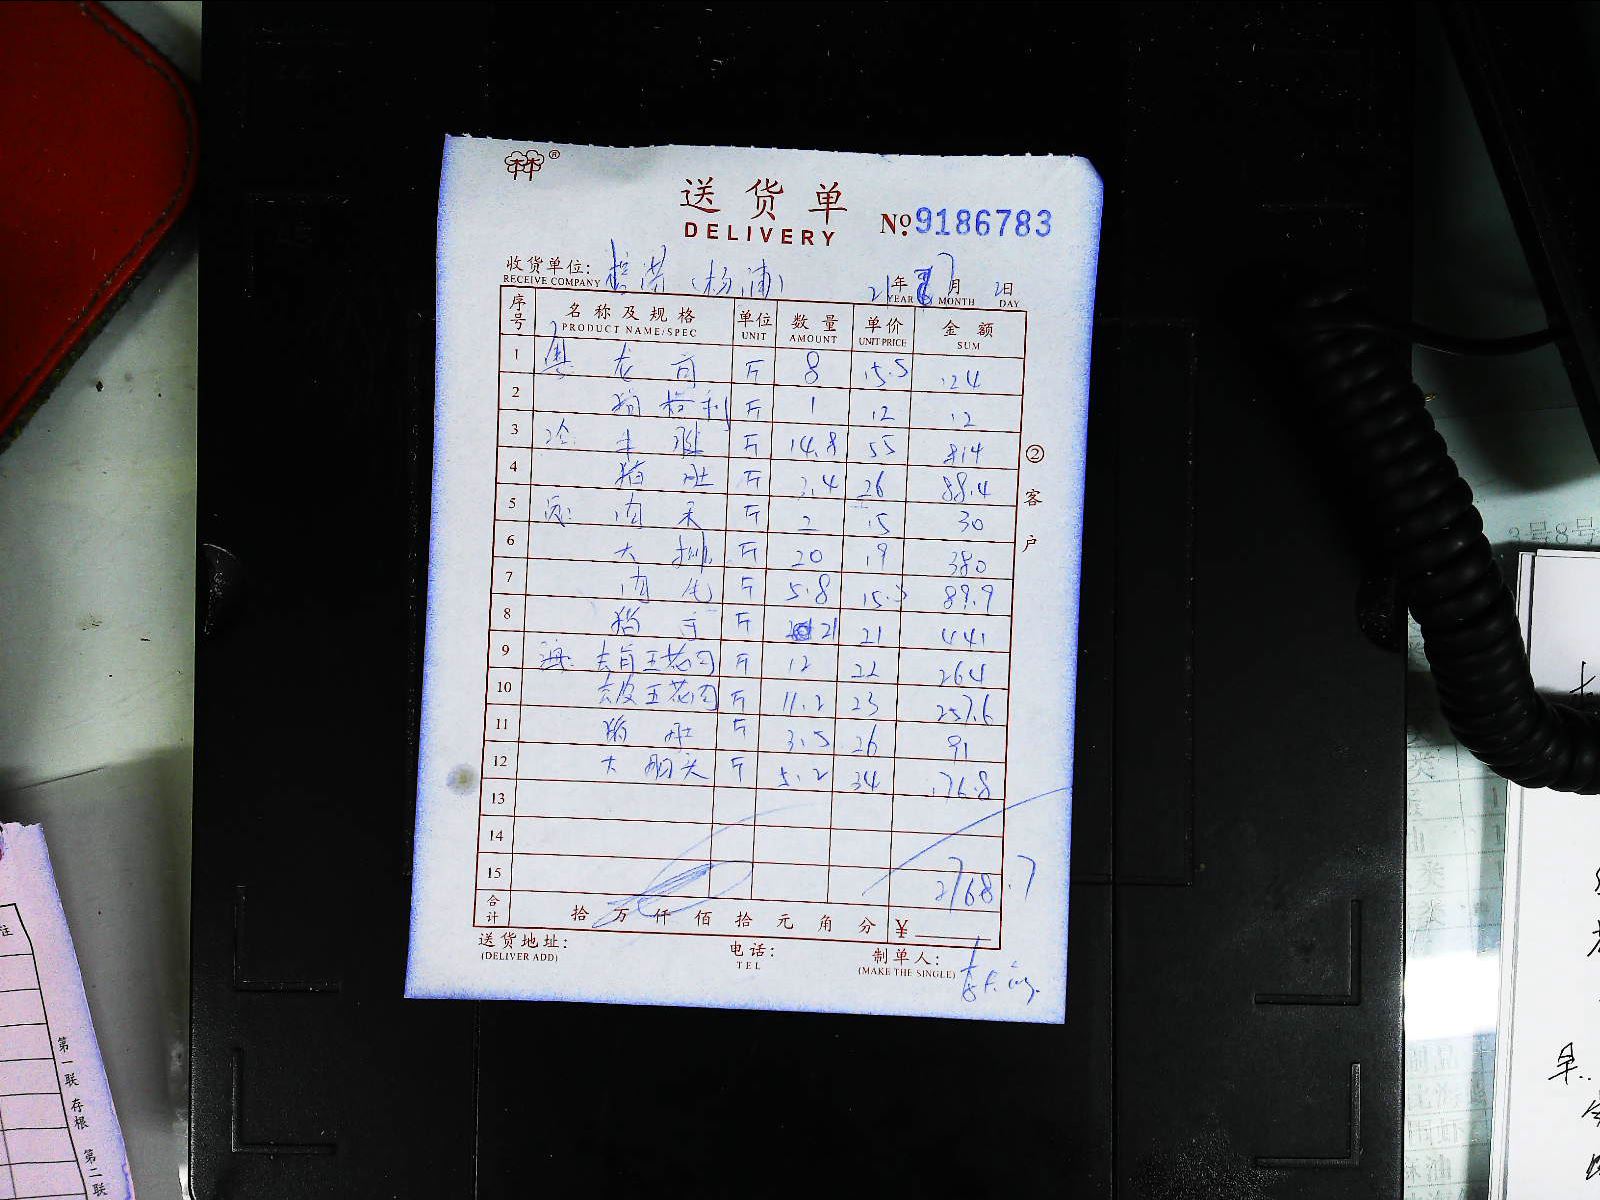 林®
送货单
DELIVERY
№9186783
收货单位: (杨浦) 21年7月2日
RECEIVE COMPANY YEAR MONTH DAY
序号 名称及规格 单位 数量 单价 金额
PRODUCT NAME/SPEC UNIT AMOUNT UNIT PRICE SUM
1 粤: 龙骨 斤 8 15.5 124
2 斤 1 12 12
3 冷: 牛腱 斤 14.8 55 814
4 猪肚 斤 3.4 26 88.4
5 点: 肉末 斤 2 15 30
6 大排 斤 20 19 380
7 肉 斤 5.8 15.5 89.9
8 猪 斤 21 21 441
9 去骨五花肉 斤 12 22 264
10 去皮五花肉 斤 11.2 23 257.6
11 猪肚 斤 3.5 26 91
12 大 斤 5.2 34 176.8
13
14
15 2768.7
合计 拾万仟佰拾元角分 ¥
送货地址: 电话: 制单人:
(DELIVER ADD) TEL (MAKE THE SINGLE)
②客户
第一联 存根 第二联
注